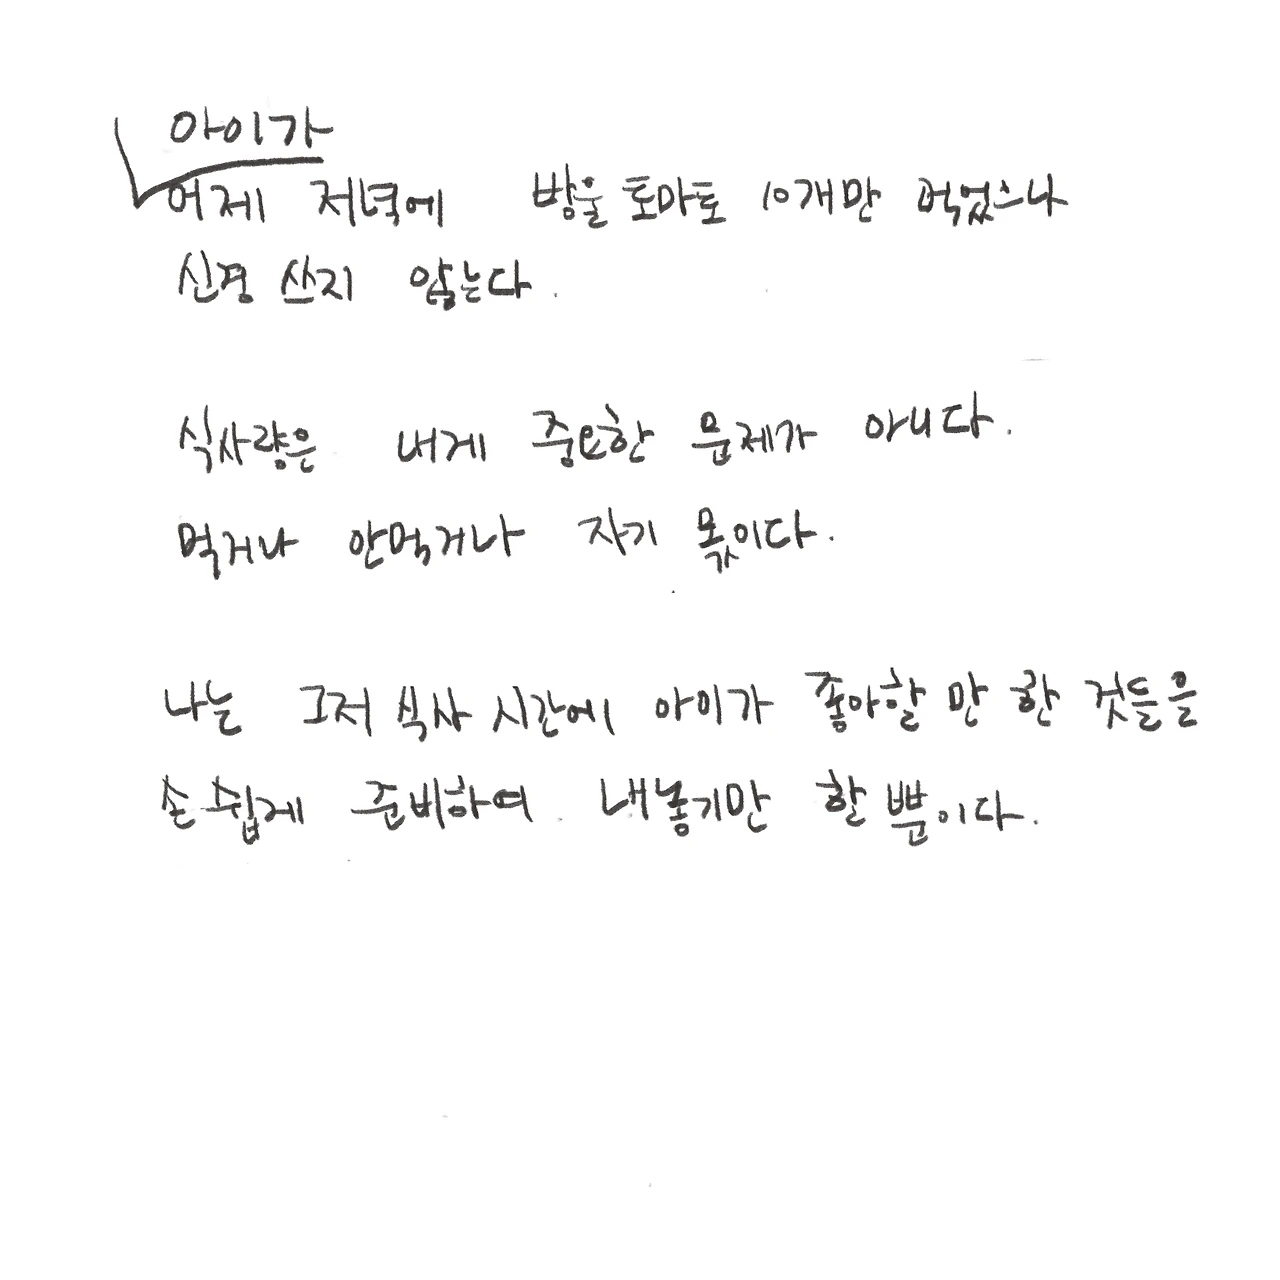 아이가
어제 저녁에 방울 토마토 10개만 먹었으나
신경 쓰지 않는다.
식사량은 내게 중요한 문제가 아니다.
먹거나 안먹거나 자기 몫이다.
나는 그저 식사 시간에 아이가 좋아할 만 한 것들을
손쉽게 준비하여 내놓기만 할 뿐이다.